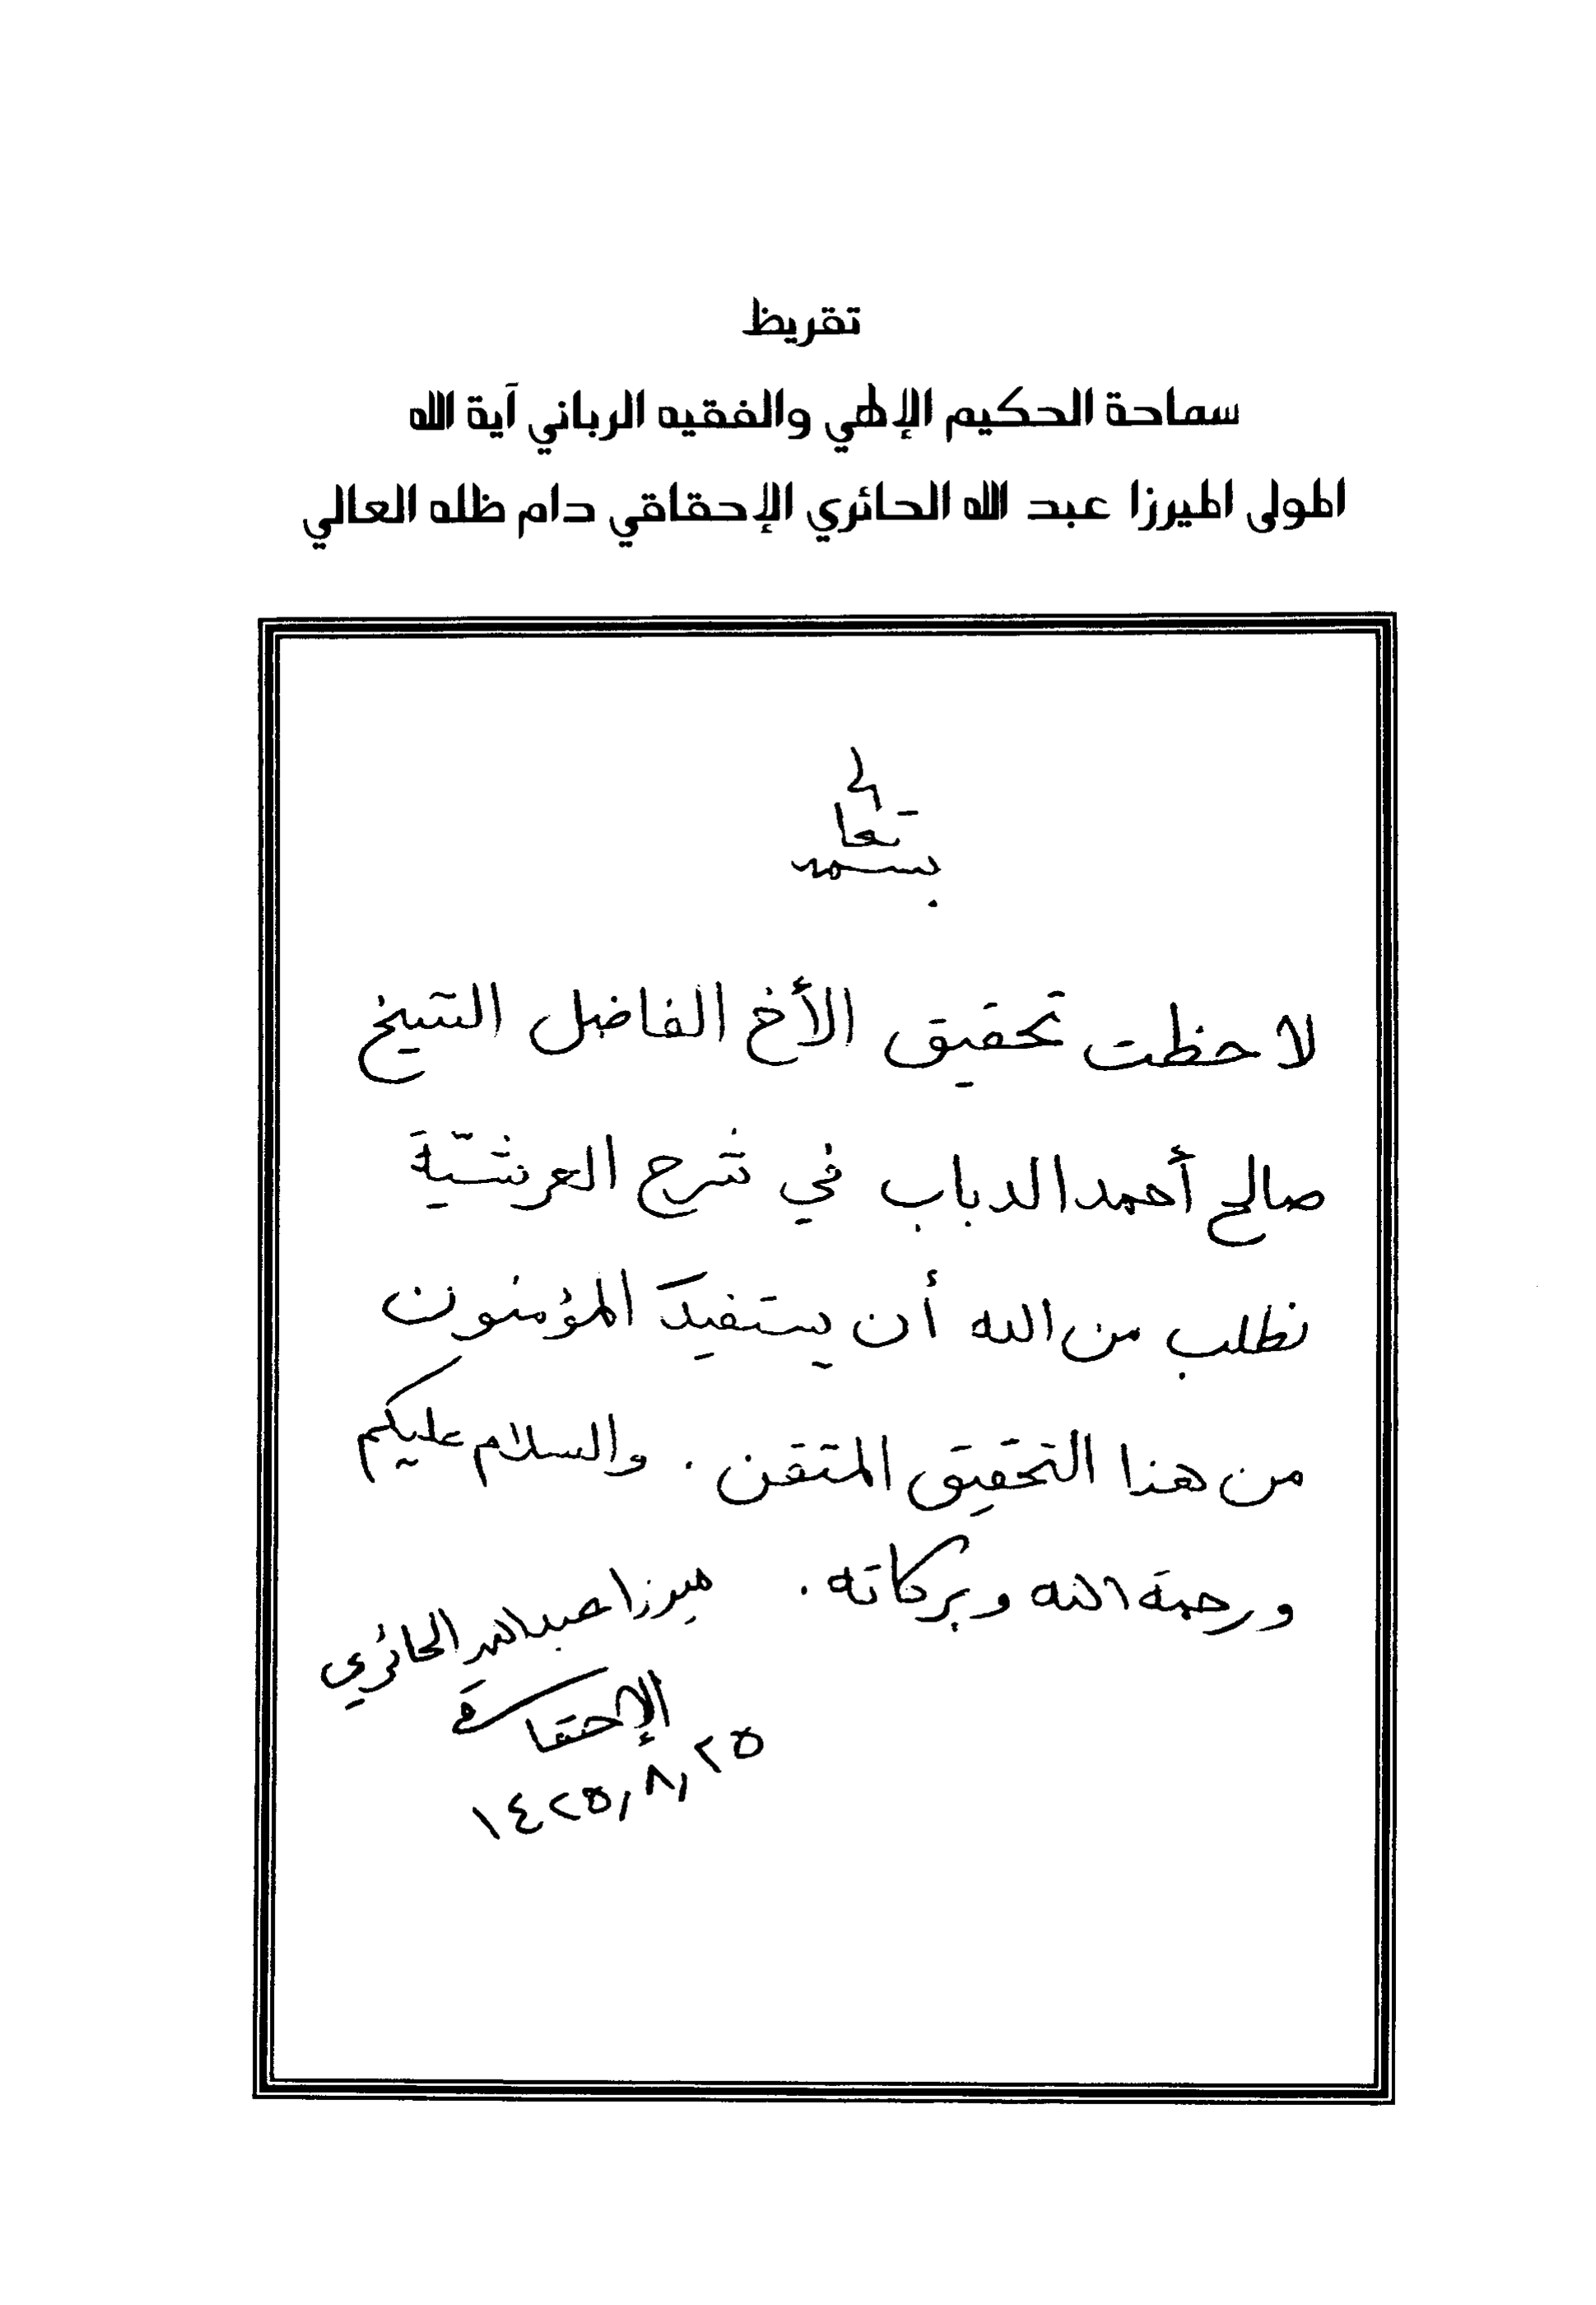 تقريظ
سماحة الحكيم الإلهي والفقيه الرباني آية الله
المولى الميرزا عبد الله الحائري الإحقاقي دام ظله العالي
بسمه تعالى
لاحظت تحقيق الأخ الفاضل الشيخ
صالح أحمد الدباب في شرح العرشيّة
نطلب من الله أن يستفيد المؤمنون
من هذا التحقيق المتقن . والسلام عليكم
ورحمة الله وبركاته . ميرزا عبد الله الحائري
الإحقاقي
٢٥ / ٨ / ١٤٢٥